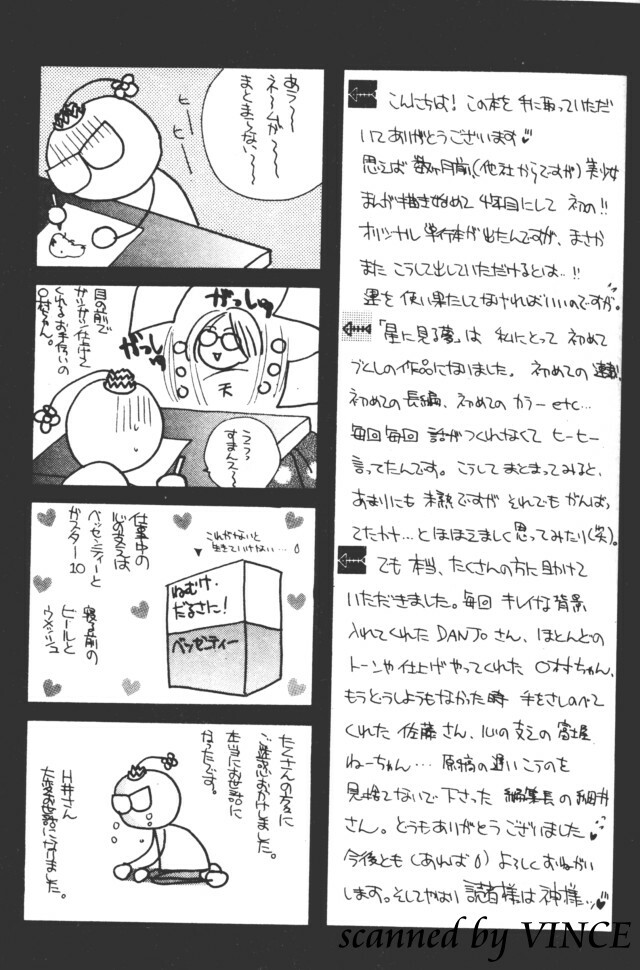 こんにちは! この本を手に取っていただ
いてありがとうございます♥
思えば数ヶ月前、(他社からですが)美少女
まんが描き始めて4年目にして初の!!
オリジナル単行本が出たんですが、まさか
またこうして出していただけるとは..!!
運を使い果たしてなければいいのですが。
「星に見る夢」は私にとって初めて
づくしの作品になりました。初めての連載、
初めての長編、初めてのカラーetc…
毎回毎回話がつくれなくてヒーヒー
言ってたんです。こうしてまとまってみると、
あまりにも未熟ですがそれでもがんばっ
てたかナ…とほほえましく思ってみたり(笑)。
でも本当、たくさんの方に助けて
いただきました。毎回キレイな背景
入れてくれたDANJoさん、ほとんどの
トーンや仕上げやってくれた〇村ちゃん、
もうどうしようもなかった時手をさしのべて
くれた佐藤さん、心の支えの富士屋
ねーちゃん… 原稿の遅いこの私を
見捨てないで下さった編集長の細井
さん。どうもありがとうございました
今後とも(あれば)よろしくおねがい
します。そしてやはり読者様は神様…♥
あう~~
ネームが~~
まとまらない~~~
ヒー
ヒー
目の前で
ガシガシ仕事して
くれるお手伝いの
〇村ちゃん。
がっしゅ
がっしゅ
天
ううっ
すまんえ~
仕事中の
心の支えは
ベッセンティーと
ガスター10
寝る前の
ビールと
ウメッシュ
これがないと
生きていけない…
ねむけ・
だるさに!
ベッセンティー
たくさんの方々に
ご迷惑おかけしました。
本当にお世話に
なったです。
H井さん
大変お世話になりました。
scanned by VINCE